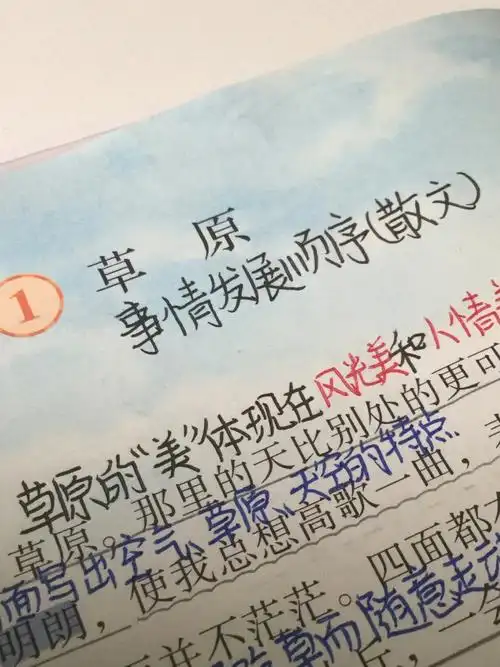 1 草原
事情发展顺序(散文)
草原的"美"体现在风光美和人情美
草原。那里的天比别处的更可
面写出空气、草原、天空的特点
，使我总想高歌一曲，
明朗，
并不茫茫。四面都
草而随意走动